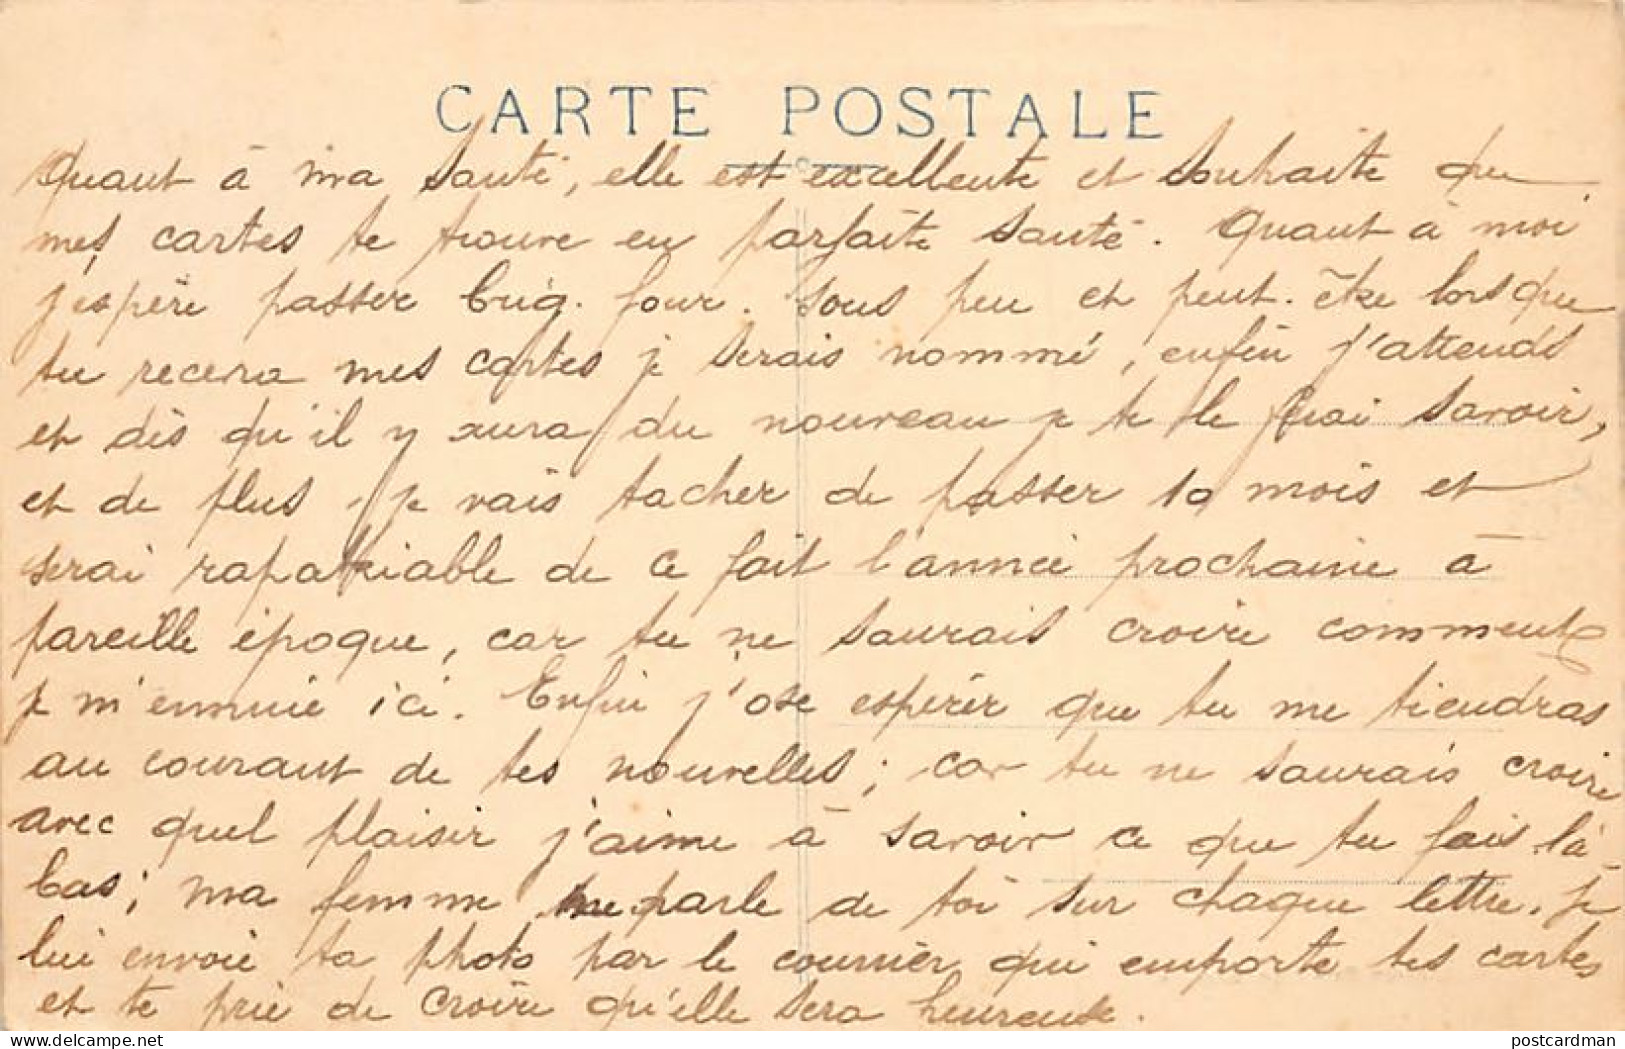 CARTE POSTALE
Quant à ma santé, elle est excellente et souhaite que
mes cartes te trouve en parfaite santé. Quant à moi
j'espère passer brig. four. sous peu et peut-être lorsque
tu recevra mes cartes je serais nommé, enfin j'attends
et dès qu'il y aura du nouveau je te le ferai savoir,
et de plus, je vais tacher de passer 10 mois et
serai rapatriable de ce fait l'année prochaine à
pareille époque, car tu ne saurais croire comment
je m'ennuie ici. Enfin j'ose espérer que tu me tiendras
au courant de tes nouvelles; car tu ne saurais croire
avec quel plaisir j'aime à savoir ce que tu fais là-
bas; ma femme me parle de toi sur chaque lettre. je
lui envoie ta photo par le courrier qui emporte tes cartes
et te prie de croire qu'elle sera heureuse.
delcampe.net
postcardman